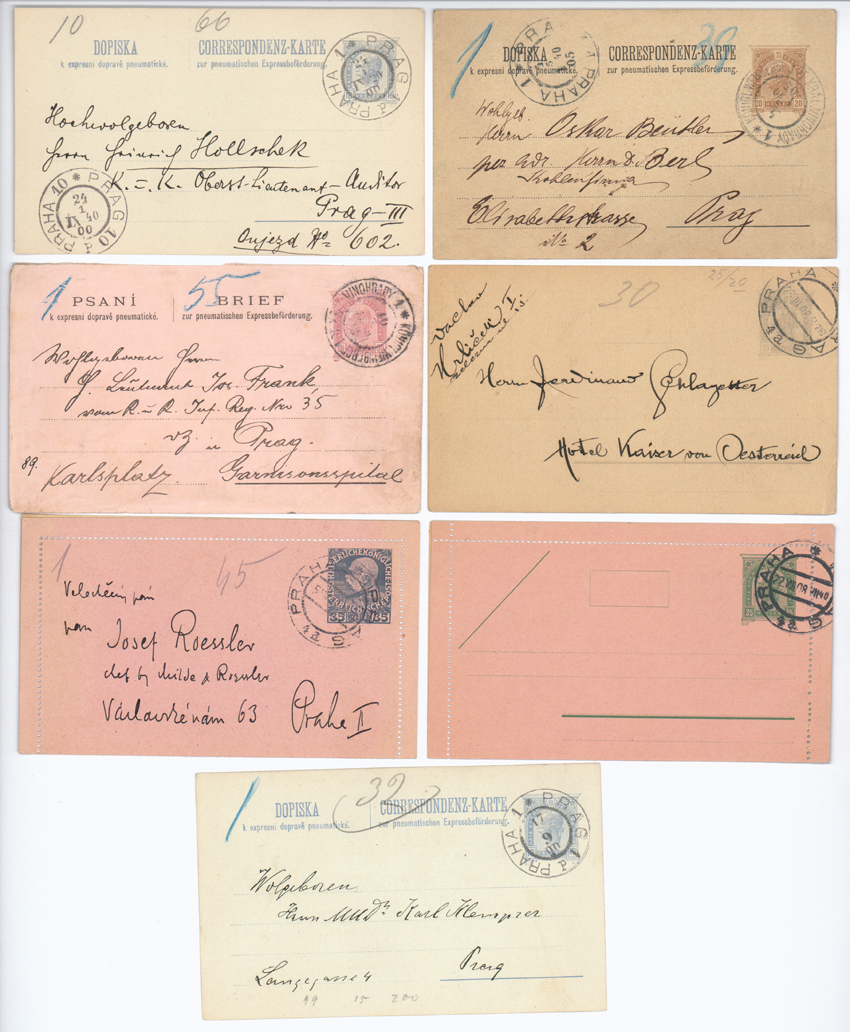 10 66
DOPISKA
k expresní dopravě pneumatické.
CORRESPONDENZ-KARTE
zur pneumatischen Expressbeförderung.
PRAG 1
PRAHA 1
Hochwolgeboren
Herrn Heinrich Hollschek
K. u. K. Oberst-Lieutenant-Auditor
Prag-III
Oujezd No 602.
PRAG 10 d
PRAHA 10
24
IX 40
00
1
38
DOPISKA
k expresní dopravě pneumatické.
CORRESPONDENZ-KARTE
zur pneumatischen Expressbeförderung.
PRAHA 1
20 20
Herrn Oskar Beutler
per adr Herrn D. Berl
Kohlenfirma
Elisabethstrasse Prag
No 2
1
55
PSANÍ
k expresní dopravě pneumatické.
BRIEF
zur pneumatischen Expressbeförderung.
VINOHRADY 1
Wohlgeboren Herrn
H. Leutnant Jos. Frank,
vom K. u. K. Inf. Reg. Nro 35
Prag.
89.
Karlsplatz. Garnisonsspital
25/20
30
PRAHA
Herrn Ferdinand Schlagetter
Hotel Kaiser von Oesterreich
1
45
PRAHA
35 35
Velectěný pán
pan
Josef Roessler
Václavské nám 63 Praha II
PRAHA
22 VIII 08
35
1
32
DOPISKA
k expresní dopravě pneumatické.
CORRESPONDENZ-KARTE
zur pneumatischen Expressbeförderung.
PRAG 1
PRAHA 1
17
9
00
Wolgeboren
Herrn MUDr Karl Klempner
Langegasse 4 Prag
19 15 200